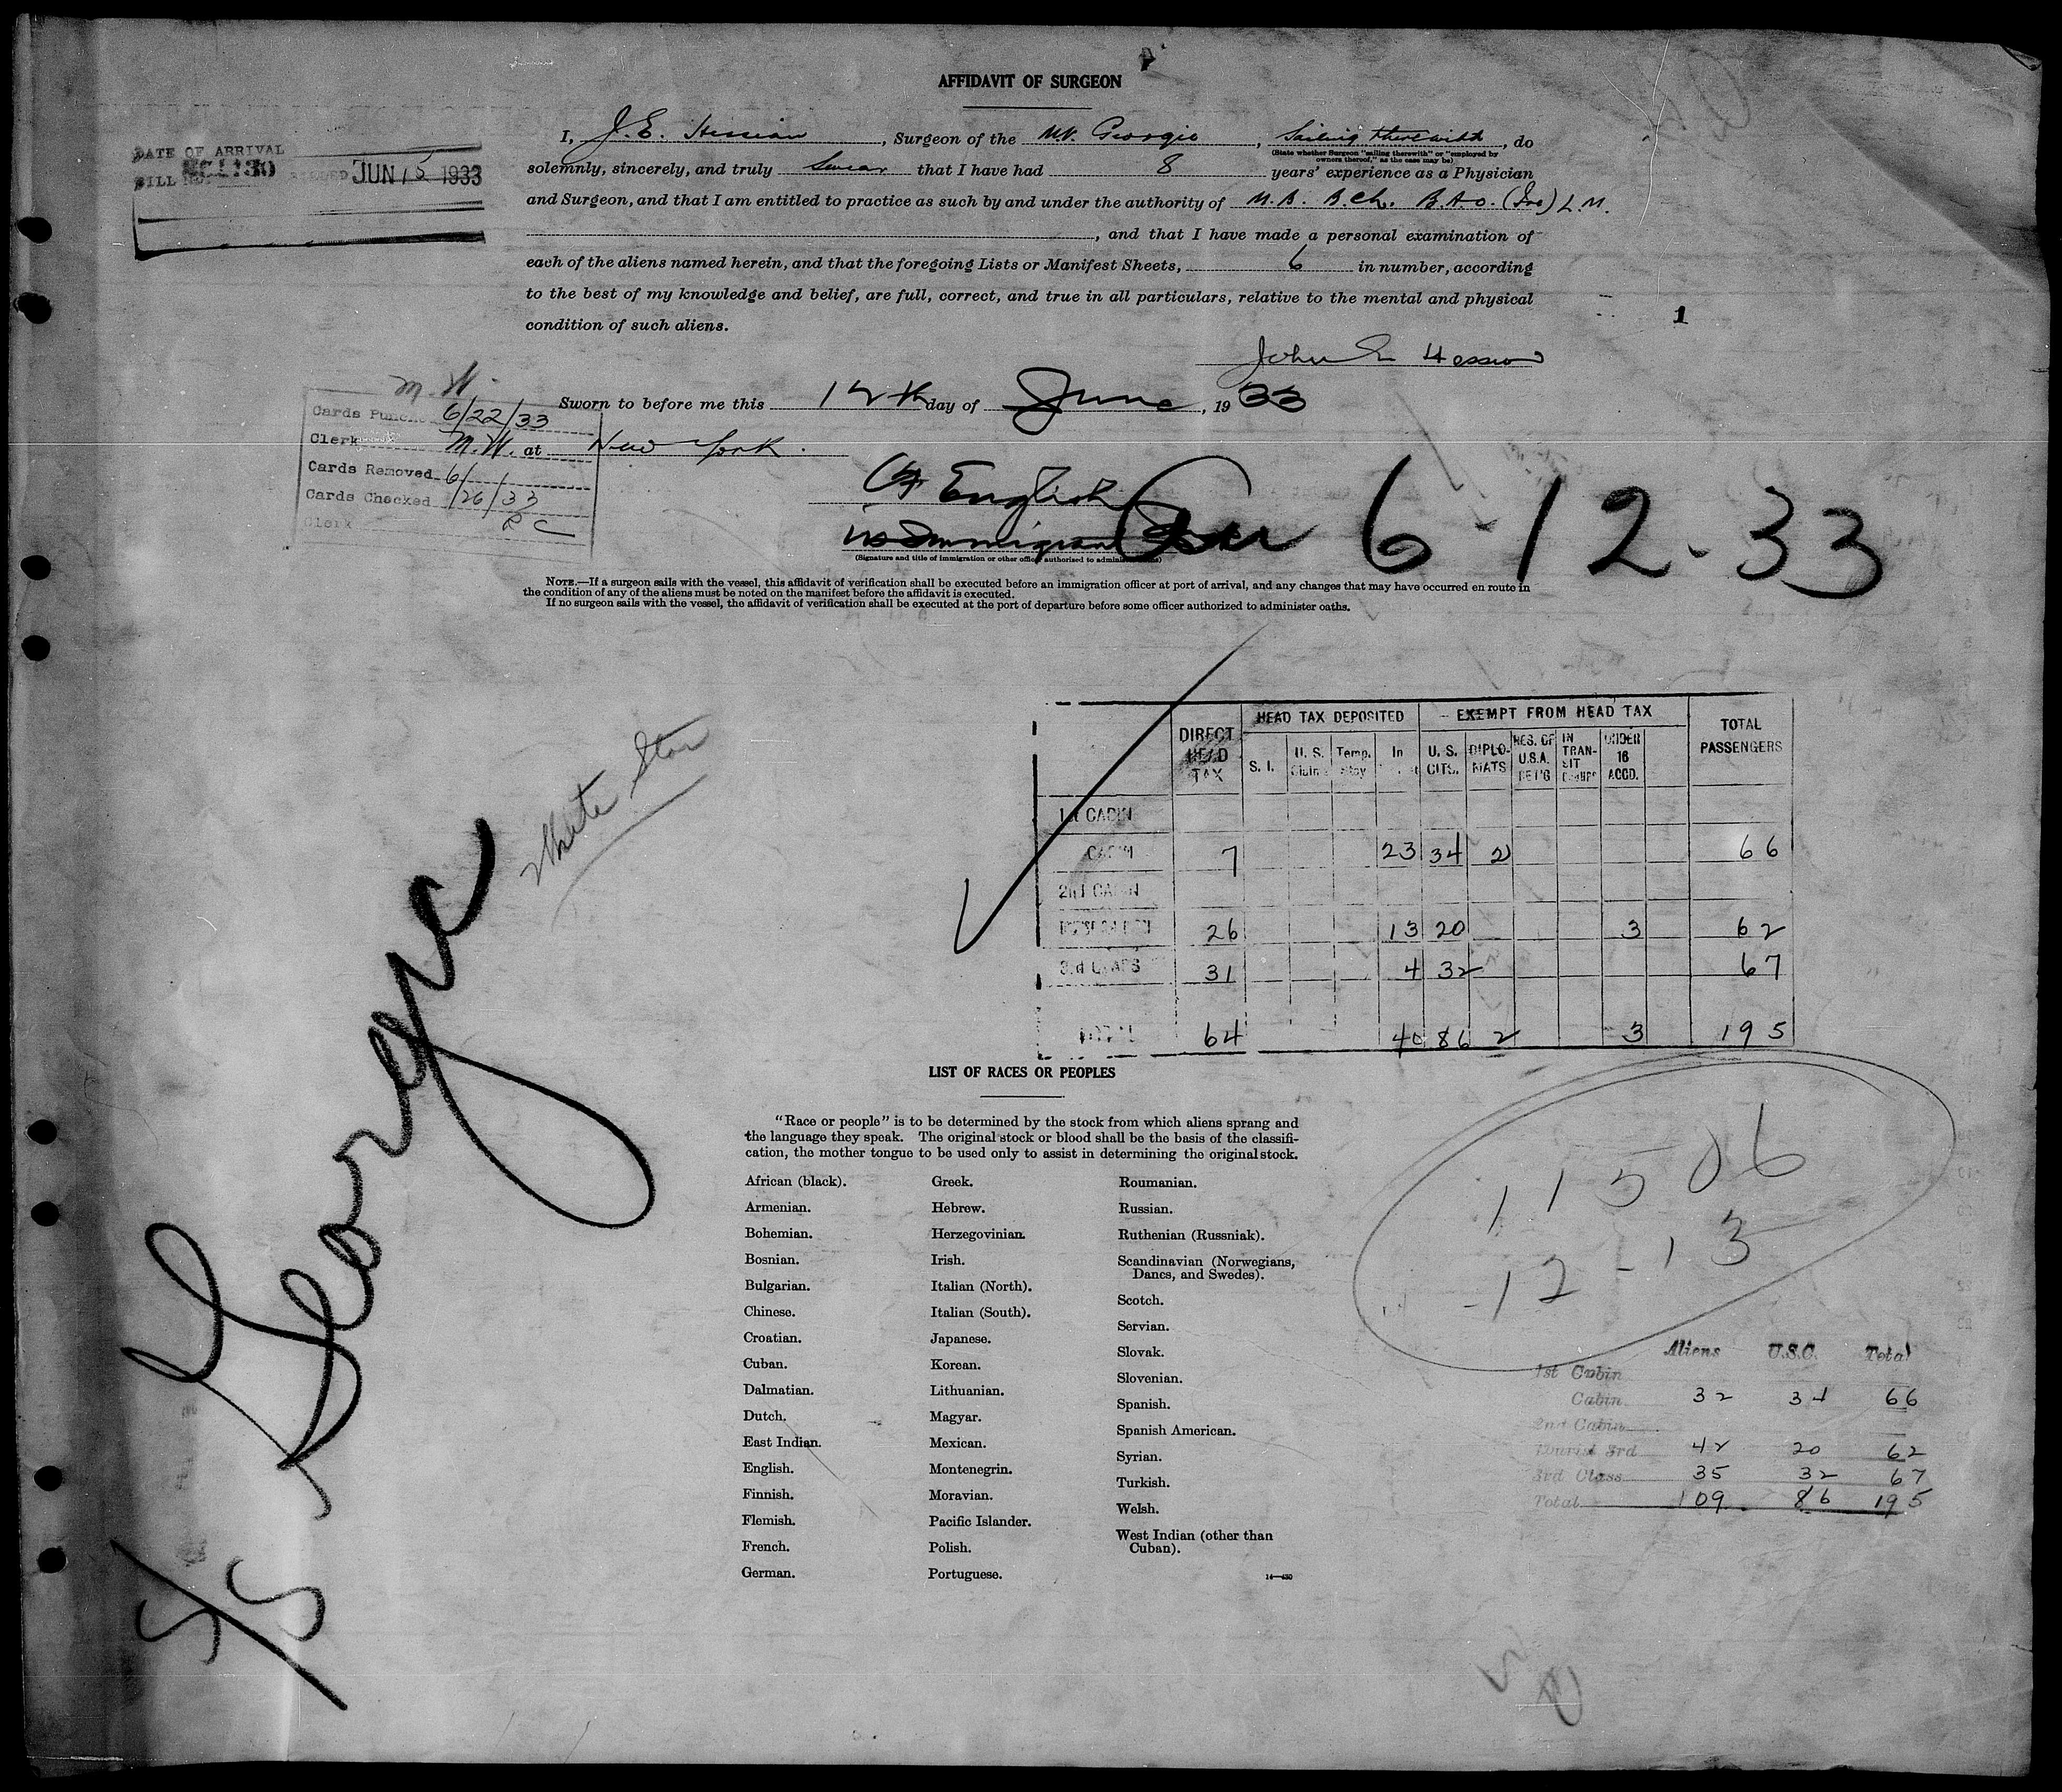 AFFIDAVIT OF SURGEON
I, J. E. Hession, Surgeon of the M.V. Georgic, Sailing therewith, do
(State whether Surgeon "sailing therewith" or "employed by
owners thereof," as the case may be)
solemnly, sincerely, and truly Swear that I have had 8 years' experience as a Physician
and Surgeon, and that I am entitled to practice as such by and under the authority of M.B. B.Ch. B.A.O. (Ire) L.M.
, and that I have made a personal examination of
each of the aliens named herein, and that the foregoing Lists or Manifest Sheets, 6 in number, according
to the best of my knowledge and belief, are full, correct, and true in all particulars, relative to the mental and physical
condition of such aliens.
DATE OF ARRIVAL
BILL JUN 15 1933
1
John E Hession
Sworn to before me this 12th day of June, 1933
at New York.
M.W.
Cards Punch 6/22/33
Clerk M.W.
Cards Removed 6/
Cards Checked /26/33
Clerk RC
English
Immigrant
6-12-33
(Signature and title of immigration or other officer authorized to administer oaths)
NOTE.—If a surgeon sails with the vessel, this affidavit of verification shall be executed before an immigration officer at port of arrival, and any changes that may have occurred en route in
the condition of any of the aliens must be noted on the manifest before the affidavit is executed.
If no surgeon sails with the vessel, the affidavit of verification shall be executed at the port of departure before some officer authorized to administer oaths.
White Star
S/S Georgic
DIRECT HEAD TAX HEAD TAX DEPOSITED EXEMPT FROM HEAD TAX TOTAL PASSENGERS
S. I. U. S. Temp. Stay In U. S. CITS. DIPLO-MATS RES. OF U.S.A. RET'G IN TRAN-SIT UNDER 16 ACCD.
1st CABIN
CABIN 7 23 34 2 66
2nd CABIN
26 13 20 3 62
3rd CLASS 31 4 32 67
TOTAL 64 40 86 2 3 195
LIST OF RACES OR PEOPLES
"Race or people" is to be determined by the stock from which aliens sprang and
the language they speak. The original stock or blood shall be the basis of the classifi-
cation, the mother tongue to be used only to assist in determining the original stock.
African (black).
Armenian.
Bohemian.
Bosnian.
Bulgarian.
Chinese.
Croatian.
Cuban.
Dalmatian.
Dutch.
East Indian.
English.
Finnish.
Flemish.
French.
German.
Greek.
Hebrew.
Herzegovinian.
Irish.
Italian (North).
Italian (South).
Japanese.
Korean.
Lithuanian.
Magyar.
Mexican.
Montenegrin.
Moravian.
Pacific Islander.
Polish.
Portuguese.
Roumanian.
Russian.
Ruthenian (Russniak).
Scandinavian (Norwegians,
Danes, and Swedes).
Scotch.
Servian.
Slovak.
Slovenian.
Spanish.
Spanish American.
Syrian.
Turkish.
Welsh.
West Indian (other than
Cuban).
14—430
11506
-12-13
Aliens U.S.C. Total
1st Cabin
Cabin 32 34 66
2nd Cabin
Tourist 3rd 42 20 62
3rd Class 35 32 67
Total 109 86 195